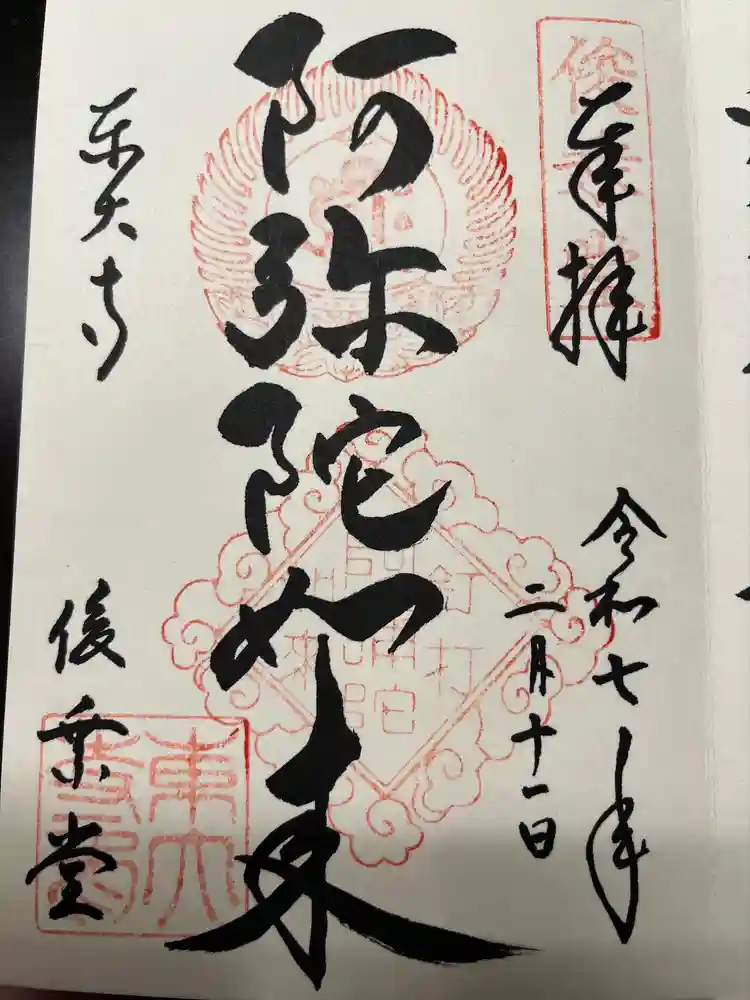 奉拝
俊乗堂
令和七年
二月十一日
阿弥陀如来
東大寺
俊乗堂
東大